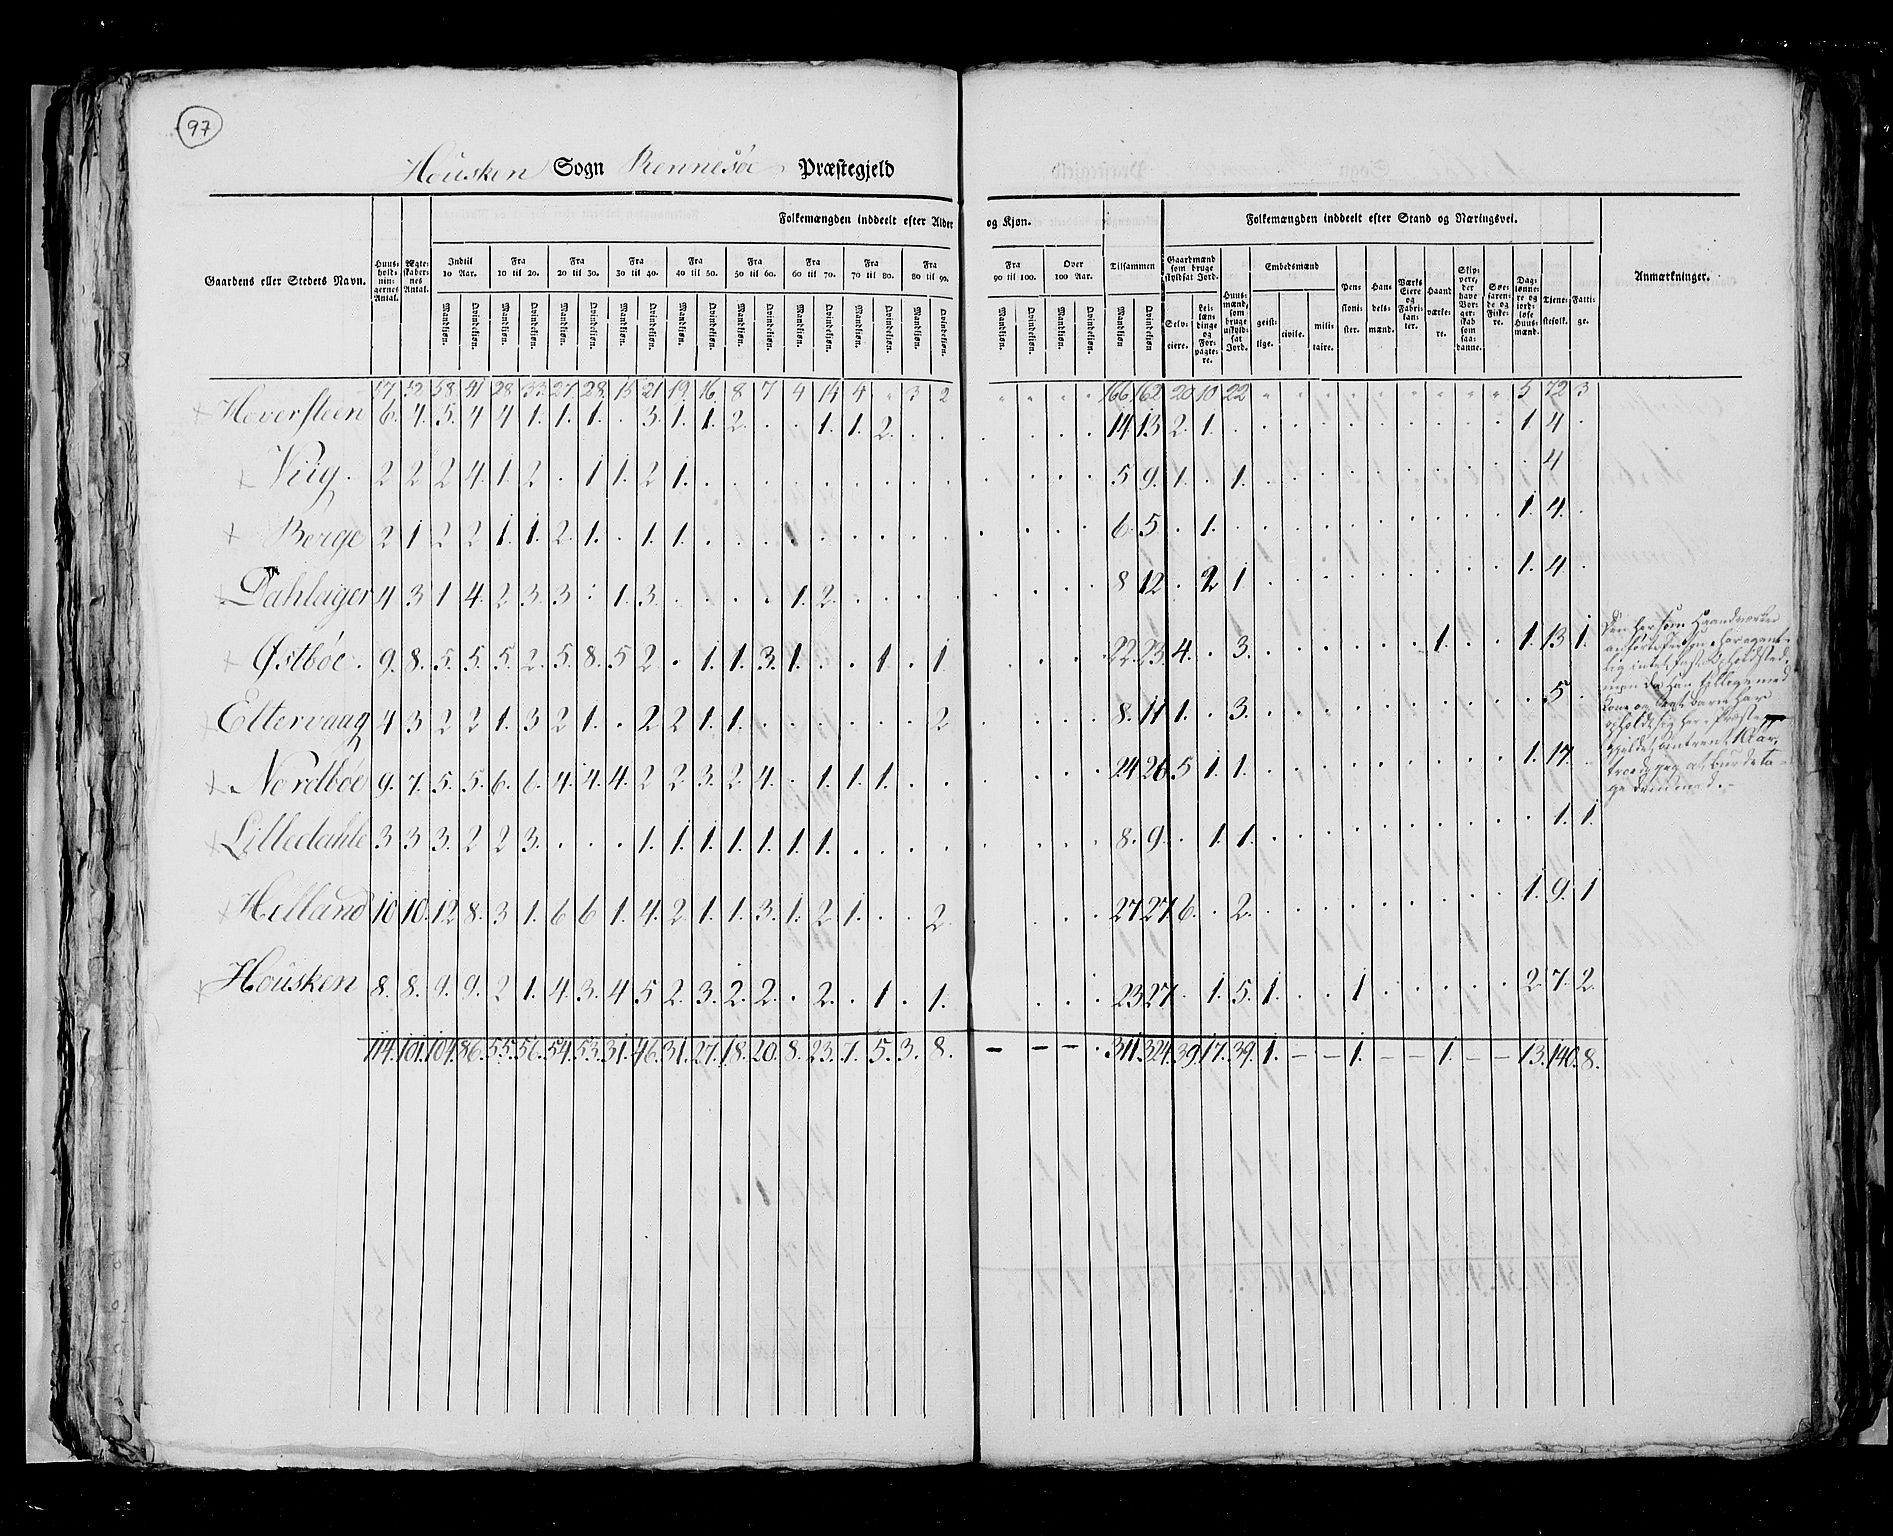 97
Housken Sogn Rennesöe Præstegjeld
Folkemængden inddeelt efter Alder og Kjøn. Folkemængden inddeelt efter Stand og Næringsvei.
Gaardens eller Stedets Navn. Huusholdningernes Antal. Ægteskabernes Antal. Indtil 10 Aar. Fra 10 til 20. Fra 20 til 30. Fra 30 til 40. Fra 40 til 50. Fra 50 til 60. Fra 60 til 70. Fra 70 til 80. Fra 80 til 90. Fra 90 til 100. Over 100 Aar. Tilsammen Gaardmænd som bruge skyldsat Jord. Huusmænd, som bruge uskyldsat Jord. Embedsmænd Pensionister. Handelsmænd. Værks Eiere og Fabrikanter. Haandværkere. Skippere, der have Borgerskab som saadanne. Søefarende og Fiskere. Daglønnere og jordløse Huusmænd. Tjenestefolk. Fattige. Anmærkninger.
Mandkjøn. Qvindekjøn. Mandkjøn. Qvindekjøn. Mandkjøn. Qvindekjøn. Mandkjøn. Qvindekjøn. Mandkjøn. Qvindekjøn. Mandkjøn. Qvindekjøn. Mandkjøn. Qvindekjøn. Mandkjøn. Qvindekjøn. Mandkjøn. Qvindekjøn. Mandkjøn. Qvindekjøn. Mandkjøn. Qvindekjøn. Mandkjøn Qvindekjøn. Selveiere. Leilændinge og Forpagtere. geistlige. civile. militaire.
57 52 58 41 28 33 27 28 15 21 19 16 8 7 4 14 4 " 3 2 " " " " 166 162 20 10 22 " " " " " " " " " 5 72 3
Heversteen 6. 4. 5. 4 4 1. 1. 1. . 3. 1. 1. 2. . . 1. 1. 2. . . . . . . 14 13 2. 1. . . . . . . . . . . 1. 4. .
Viig. 2 2 2 4. 1. 2 . 1 1. 2 1. . . . . . . . . . . . . . 5 9. 1. . 1. . . . . . . . . . . 4.
Borge 2 1 2 2 1. 1. 2. 1. . 1. 1. . . . . . . . . . . . . . 6. 5. . 1. . . . . . . . . . . 1. 4. .
Dahlager 4 3 1 4. 2 3. 3 . . 1. 3. . . . . 1. 2. . . . . . . . 8 12. . 2 1 . . . . . . . . . 1. 4. .
Østbøe. 9. 8. 5. 5. 5. 2. 5. 8. 5 2. . 1. 1. 3. 1. . . 1. . 1. . . . 22. 23. 4. . 3. . . . . . . 1. . . 1. 13 1.
Eltervaag 4 3 2 2 1. 3 2 1. . 2 2 1. 1. . . . . . . 2. . . . 8. 11 1. . 3. . . . . . . . . . . 5 .
Nordbøe 9. 7. 5. 5. 6. 6. 4. 4. 4. 2 2 3. 2 4. . 1. 1. 1. . . . . . 24 26. 5 1. 1. . . . . . . . . . 1. 17. .
Lilledahle 3 3 3. 2 2 3. . . . 1. 1. 1. 1. 1. 1. 1. . . . . . . . . 8. 9. . 1. 1. . . . . . . . . . . 1. 1.
Helland 10 10. 12 8. 3 1. 6 6 1. 4. 2 1. 1. 3. 1. 2. 1. . . 2. . . . 27 27. 6. . 2. . . . . . . . . . 1. 9. 1
Housken 8. 8. 9. 9. 2 1. 4. 3. 4 5 2. 3. 2. 2. . 2. . 1. . 1. . . . . 23. 27. . 1. 5. 1. . . 1. . . . . . 2. 7. 2.
114. 101. 104. 86. 55. 56. 54. 53. 31. 46. 31. 27. 18. 20. 8. 23. 7. 5. 3. 8. - - - . 311. 324. 39. 17. 39. 1. - - 1. - - 1. - - 13. 140. 8.
Den her som Haandværker
anførte Person har egent-
lig intet fast Opholdsted,
men da han tilligemed
Kone og Børn har
opholdt sig her i Præste
gjeldet omtrent 1 Aar,
troede jeg at burde ta-
ge dem med.